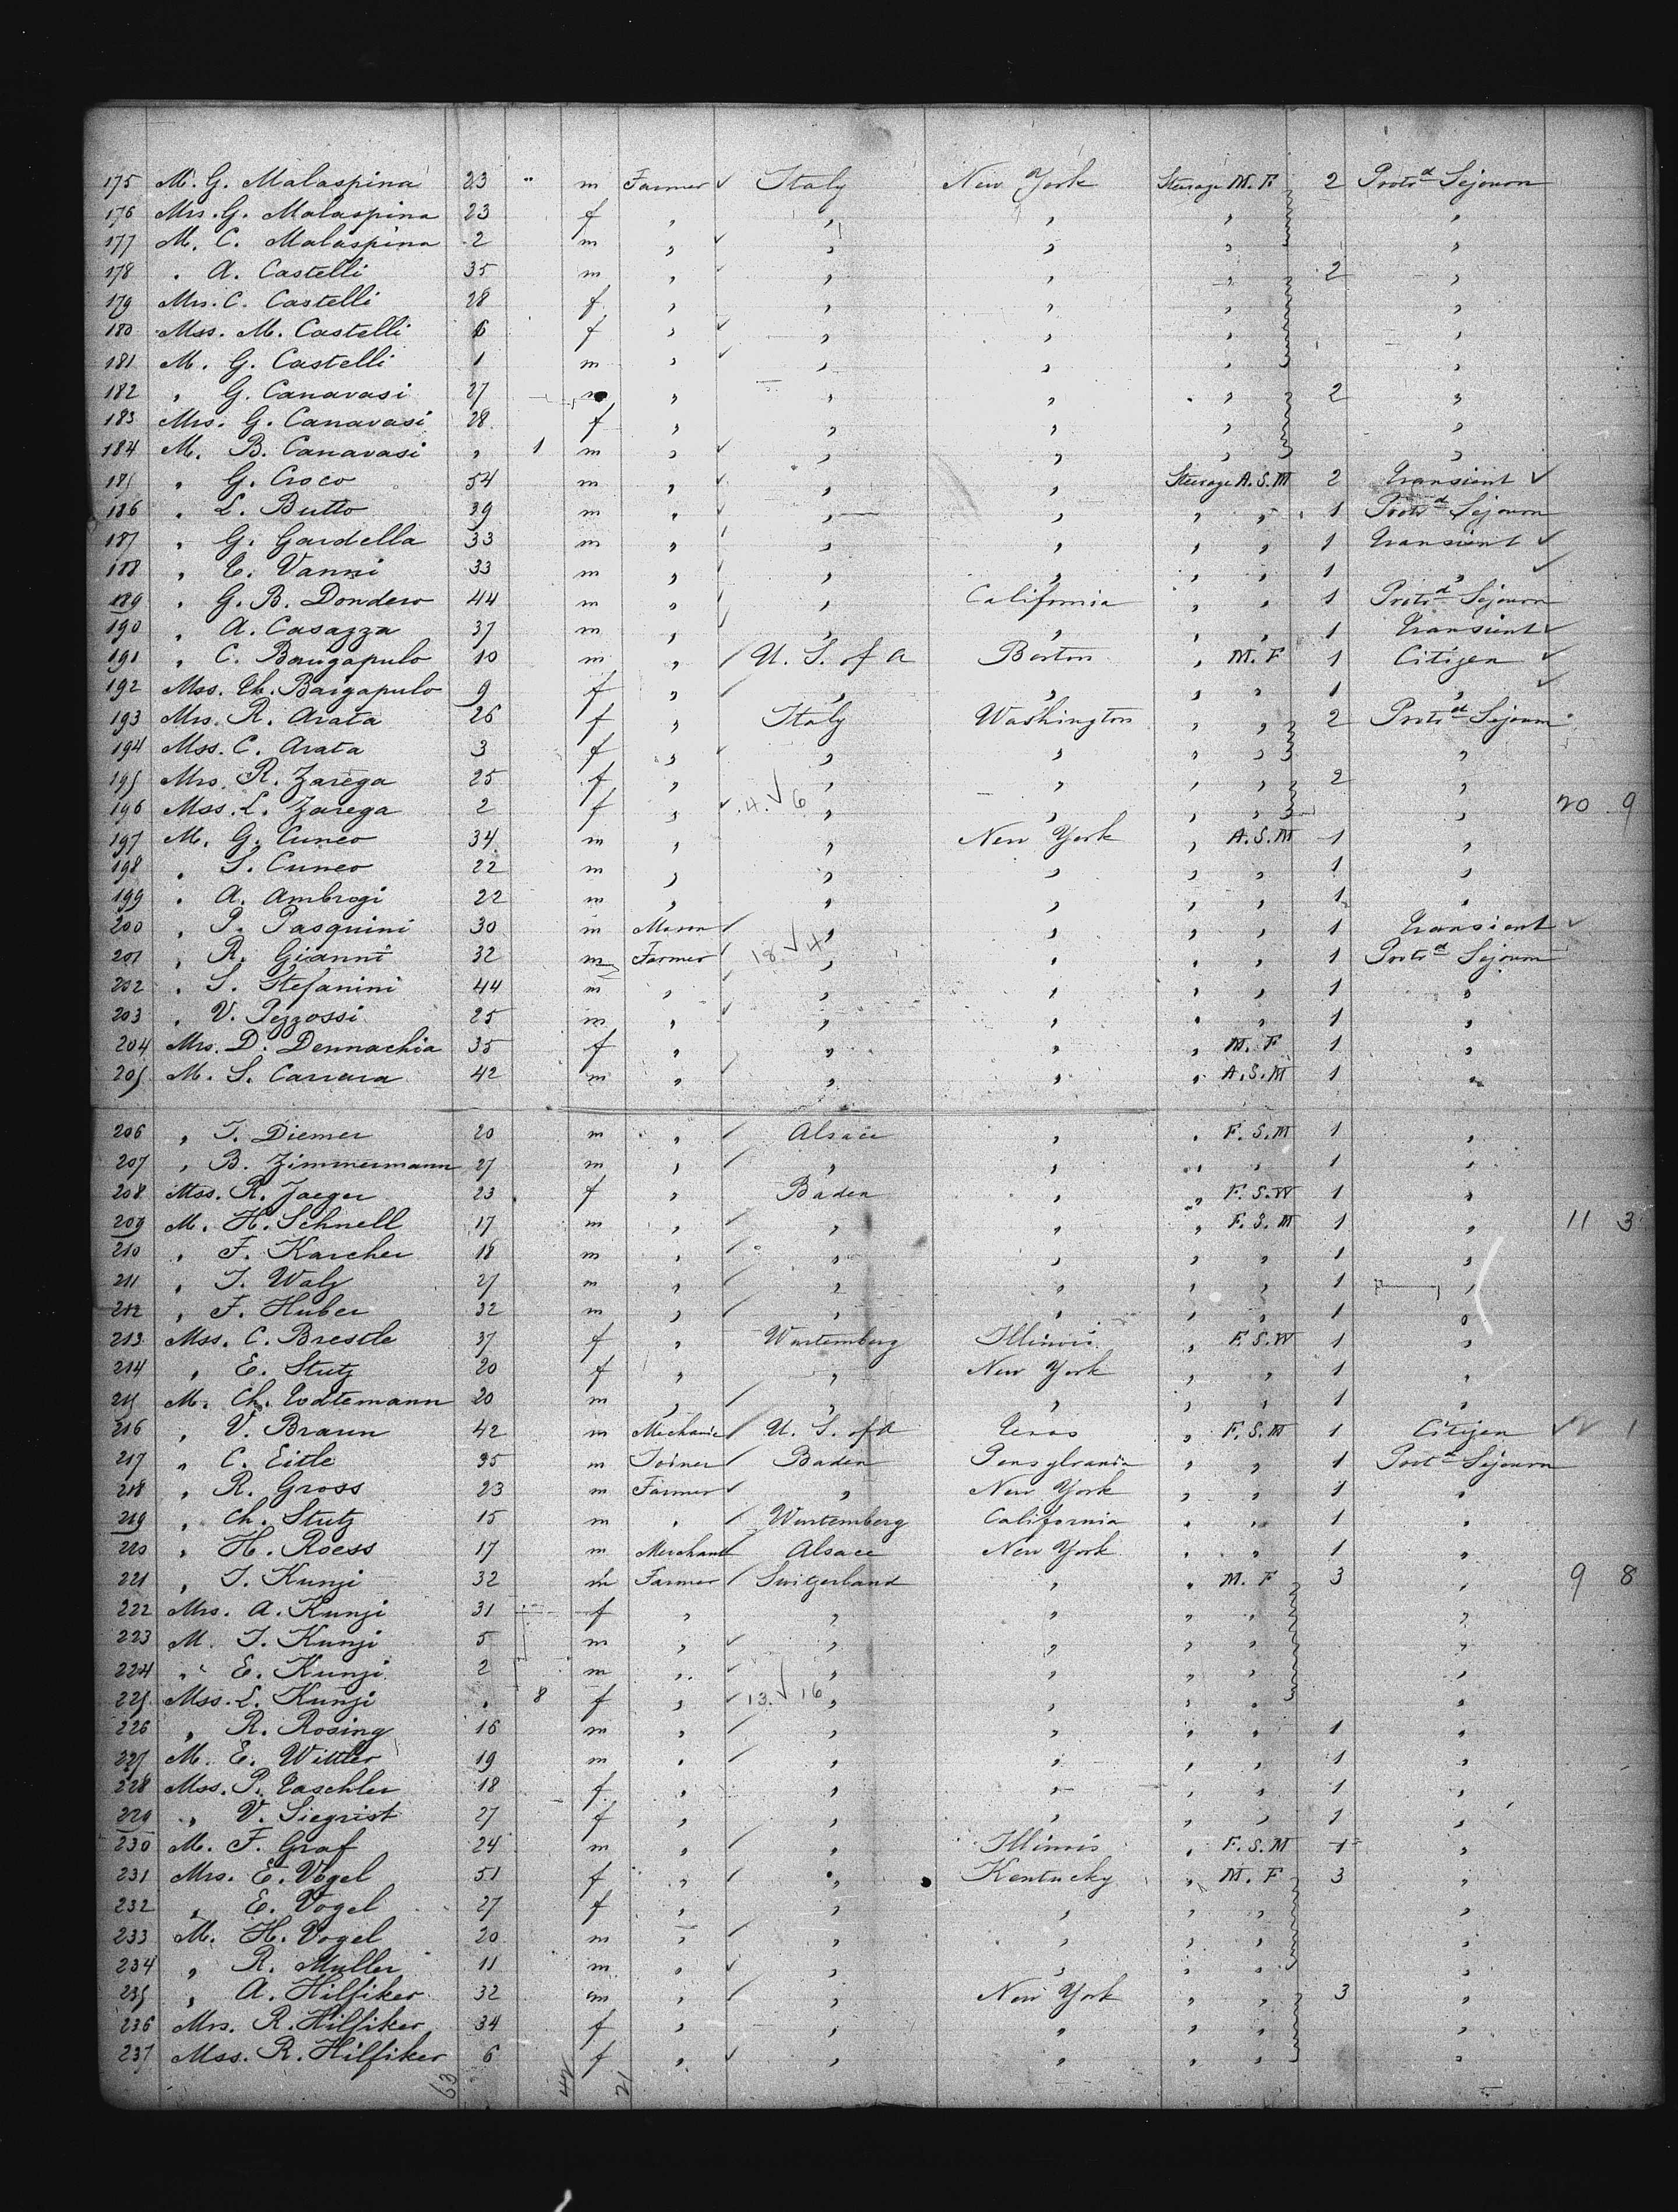 175 M. G. Malaspina 23 " m Farmer ✓ Italy New York Steerage M. F 2 Protrd Séjourn
176 Mrs. G. Malaspina 23 f " " " " "
177 M. C. Malaspina 2 m " ✓ " " " "
178 " A. Castelli 35 m " ✓ " " " 2 "
179 Mrs. C. Castelli 28 f " " " " "
180 Mss. M. Castelli 6 f " ✓ " " " "
181 M. G. Castelli 1 m " ✓ " " " "
182 " G. Canavasi 27 m " " " " 2 "
183 Mrs. G. Canavasi 28 f " " " " "
184 M. B. Canavasi " 1 m " ✓ " " " "
185 " G. Croco 54 m " ✓ " " Steerage A. S. M 2 Transient ✓
186 " L. Butto 39 m " ✓ " " " " 1 Protrd Séjourn
187 " G. Gardella 33 m " " " " " 1 Transient ✓
188 " E. Vanni 33 m " ✓ " " " " 1 " ✓
189 " G. B. Dondero 44 m " ✓ " California " " 1 Protrd Séjourn
190 " A. Casazza 37 m " ✓ " " " " 1 Transient ✓
191 " C. Baugapulo 10 m " / U. S. of A Boston " M. F 1 Citizen ✓
192 Mss. Th. Bargapulo 9 f " / " " " " 1 " ✓
193 Mrs. R. Arata 26 f " Italy Washington " " 2 Protrd Séjourn
194 Mss. C. Arata 3 f " ✓ " " " " "
195 Mrs. R. Zarega 25 f " " " " " 2 "
196 Mss. L. Zarega 2 f " ✓ 4 ✓ 6 " " " " " 20 9
197 M. G. Cuneo 34 m " " New York " A. S. M 1 "
198 " S. Cuneo 22 m " " " " " 1 "
199 " A. Ambrogi 22 m " " " " " 1 "
200 " P. Pasquini 30 m Mason / " " " " 1 Transient ✓
201 " R. Gianni 32 m Farmer / 18 ✓ 4 " " " " 1 Protrd Séjourn
202 " S. Stefanini 44 m " " " " " 1 "
203 " V. Pezzossi 25 m " ✓ " " " " 1 "
204 Mrs. D. Dennachia 35 f " / " " " M. F 1 "
205 M. S. Carrara 42 m " ✓ " " " A. S. M 1 "
206 " J. Diemer 20 m " / Alsace " " F. S. M 1 "
207 " B. Zimmermann 27 m " / " " " " 1 "
208 Mss. R. Jaeger 23 f " Baden " " F. S. W 1 "
209 M. H. Schnell 17 m " / " " " F. S. M 1 " 11 3
210 " F. Karcher 18 m " / " " " " 1 "
211 " J. Walz 27 m " / " " " " 1 "
212 " F. Huber 32 m " / " " " " 1 "
213 Mss. C. Brestle 37 f " Wurtemberg Illinois " F. S. W 1 "
214 " E. Stutz 20 f " " New York " " 1 "
215 M. Ch. Todtemann 20 m " / " " " " 1 "
216 " V. Braun 42 m Mechanic / U. S. of A Texas " F. S. M 1 Citizen ✓ 1
217 " C. Eitle 35 m Joiner / Baden Pensylvania " " 1 Protrd Séjourn
218 " R. Gross 23 m Farmer ✓ " New York " " 1 "
219 " Ch. Stutz 15 m " / Wurtemberg California " " 1 "
220 " H. Roess 17 m Merchant / Alsace New York " " 1 "
221 " J. Kunzi 32 m Farmer / Switzerland " " M. F 3 " 9 8
222 Mrs. A. Kunzi 31 f " " " " " "
223 M. J. Kunzi 5 m " ✓ " " " " "
224 " E. Kunzi 2 m " ✓ " " " " "
225 Mss. L. Kunzi " 8 f " ✓ 13 ✓ 16 " " " " "
226 " R. Rosing 16 m " / " " " " 1 "
227 M. E. Wittler 19 m " / " " " " 1 "
228 Mss. P. Taschler 18 f " " " " " 1 "
229 " V. Siegrist 27 f " " " " " 1 "
230 M. F. Graf 24 m " / " Illinois " F. S. M 1 "
231 Mrs. E. Vogel 51 f " / " Kentucky " M. F 3 "
232 " E. Vogel 27 f " " " " " "
233 M. H. Vogel 20 m " / " " " " "
234 " R. Muller 11 m " ✓ " " " " "
235 " A. Hilfiker 32 m " / " New York " " 3 "
236 Mrs. R. Hilfiker 34 f " " " " " "
237 Mss. R. Hilfiker 6 f " ✓ " " " " "
63 42 21